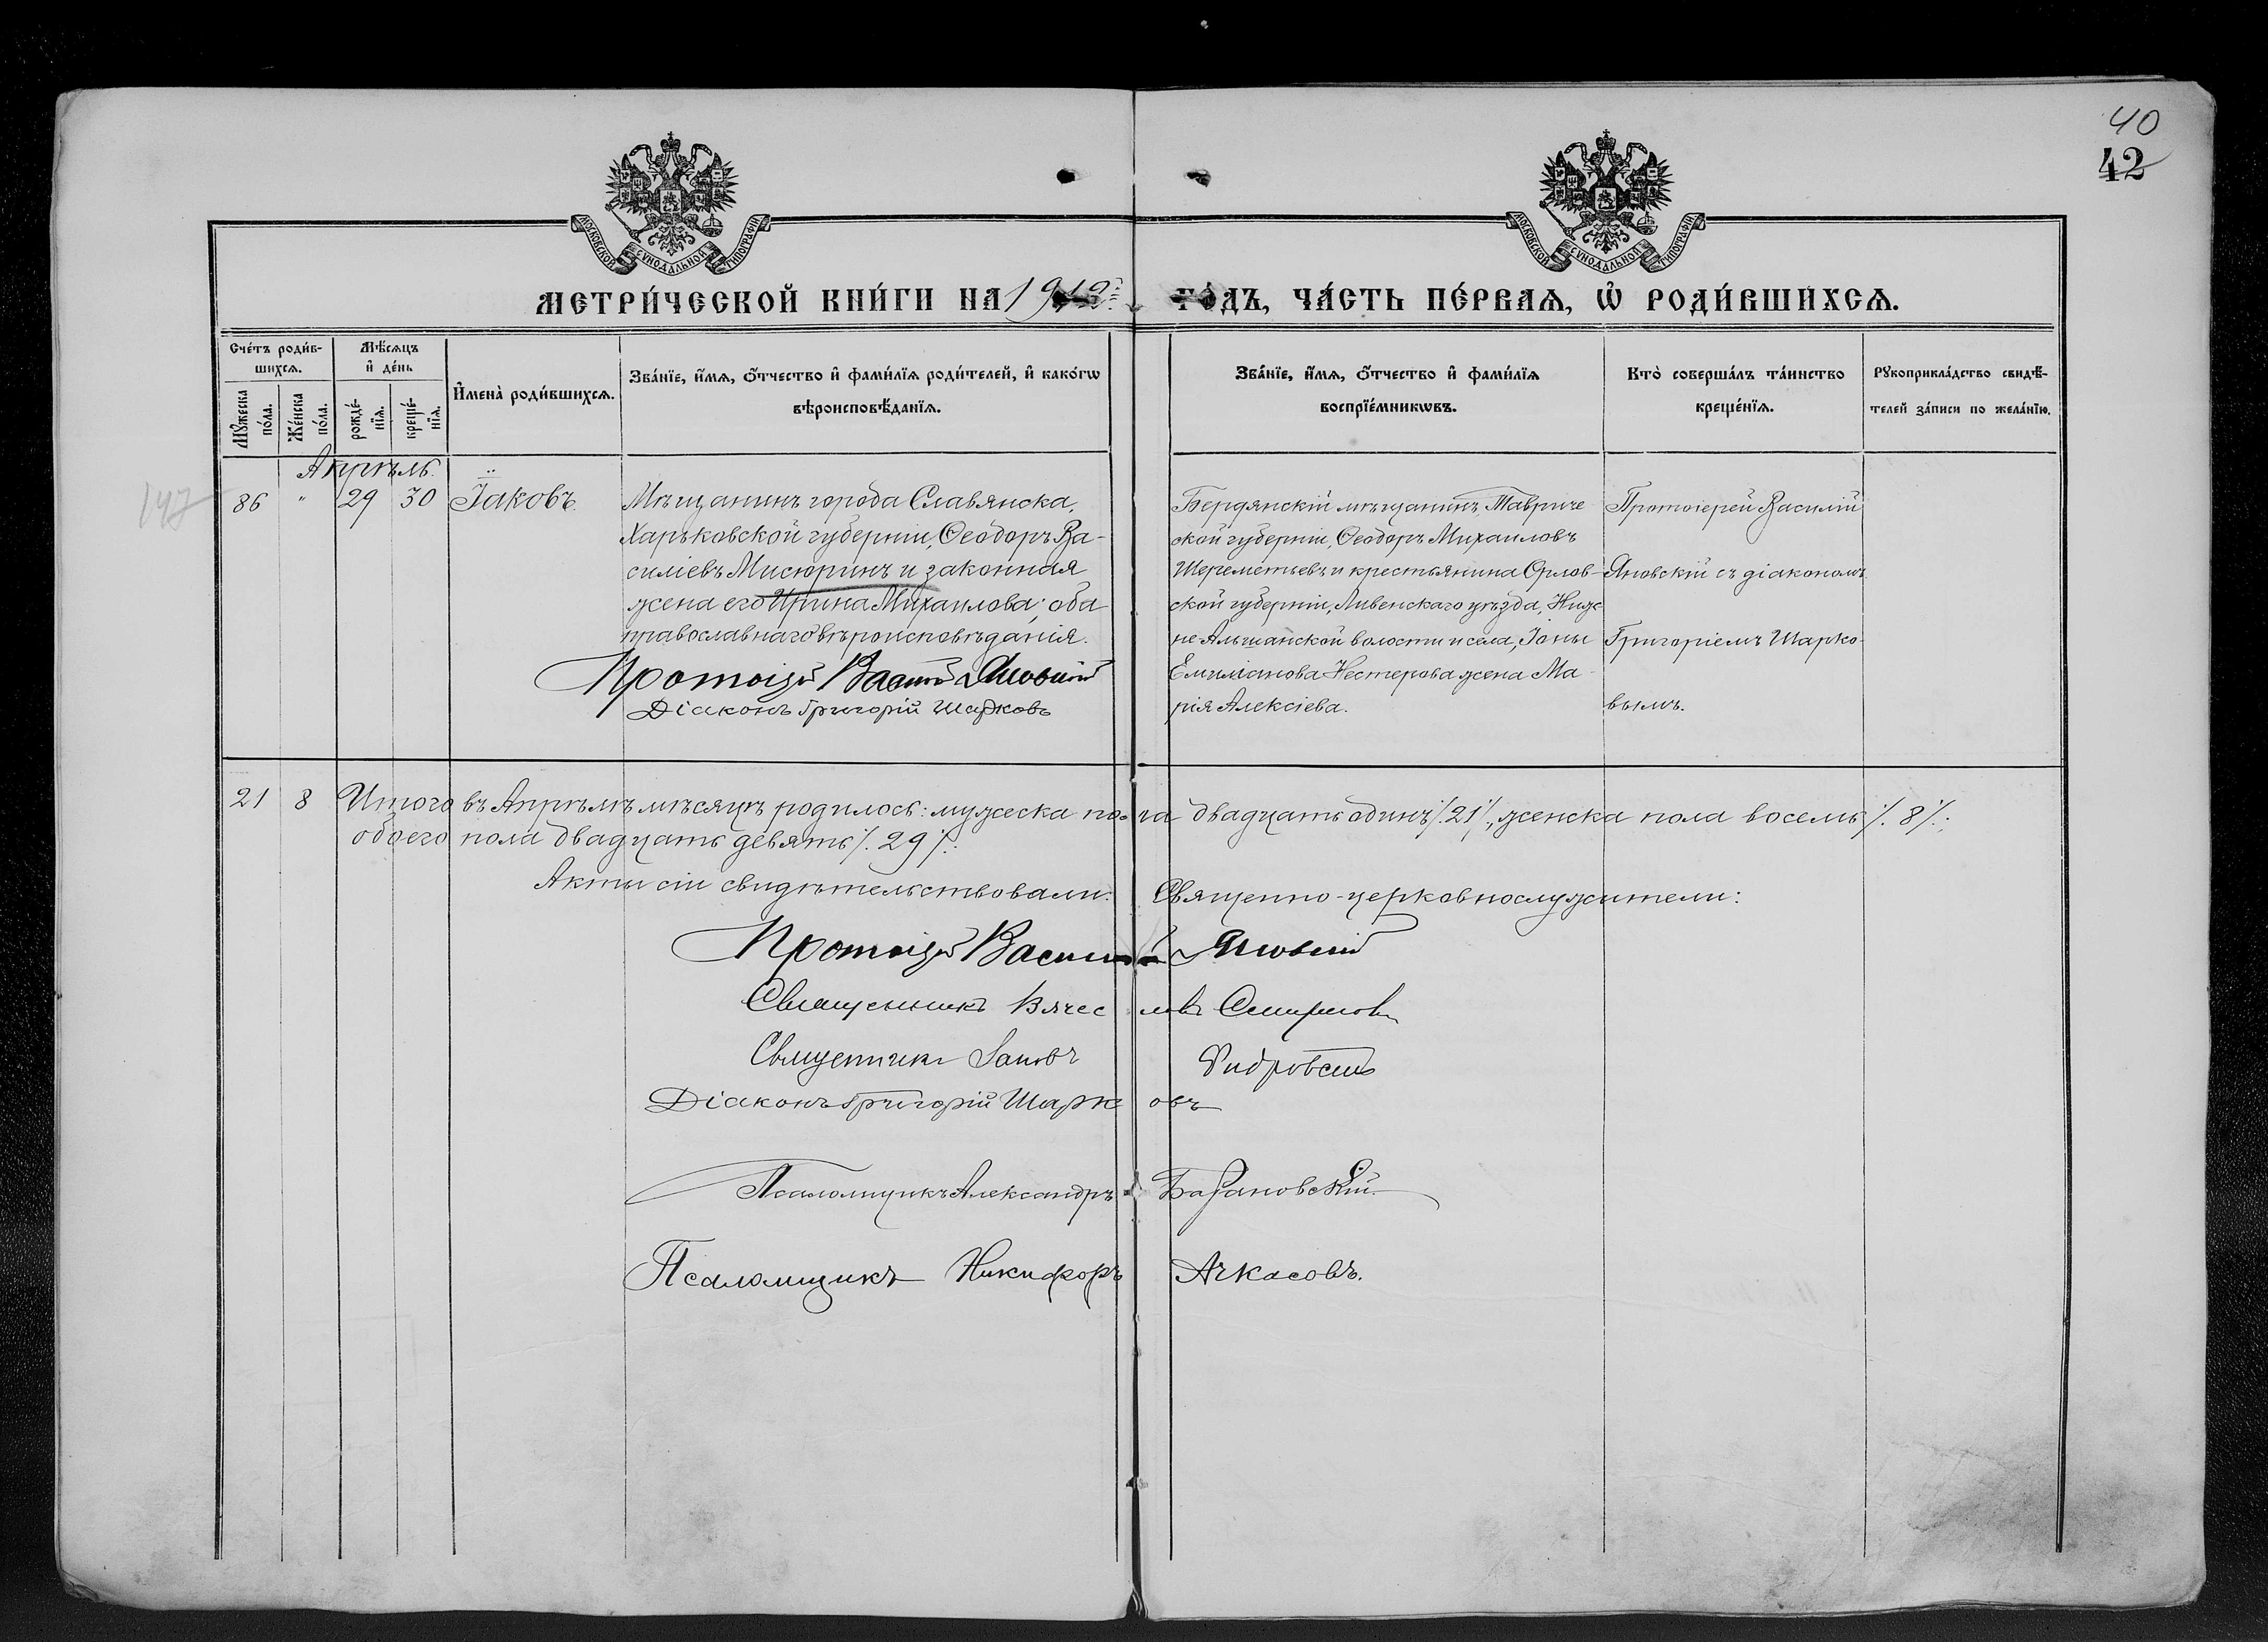 40
42
МОСКОВСКОЙ СѴНОДАЛЬНОЙ ТИПОГРАФІИ
МОСКОВСКОЙ СѴНОДАЛЬНОЙ ТИПОГРАФІИ
МЕТРИ́ЧЕСКОЙ КНИ́ГИ НА 1912 ГО́ДЪ, ЧА́СТЬ ПЕ́РВАѦ, Ѡ҆ РОДИ́ВШИХСѦ.
Сче́тъ роди́в-
шихсѧ.
Мꙋ́жеска по́ла.
Же́нска по́ла.
Мѣ́сѧцъ
и҆ де́нь
рожде́-
нїѧ.
креще́-
нїѧ.
И҆мена̀ роди́вшихсѧ.
Зва́нїе, и҆́мѧ, ѻ҆́тчество и҆ фами́лїѧ роди́телей, и҆ како́гѡ
вѣроисповѣ́данїѧ.
Зва́нїе, и҆́мѧ, ѻ҆́тчество и҆ фами́лїѧ
воспрїе́мникѡвъ.
Кто̀ соверша́лъ та́инство
креще́нїѧ.
Рꙋкоприкла́дство свидѣ́-
телей за́писи по жела́нїю.
Апрѣль.
147
86 " 29 30 Іаковъ.
Мѣщанинъ города Славянска,
Харьковской губерніи, Ѳеодоръ Ва-
силіевъ Мисюринъ и законная
жена его Ирина Михаилова; оба
православнаго вѣроисповѣданія.
Протоіерей Василій Яновскій
Діаконъ Григорій Шарковъ
Бердянскій мѣщанинъ, Тавриче
ской губерніи, Ѳеодоръ Михаиловъ
Шереметьевъ и крестьянина Орлов-
ской губерніи, Ливенскаго уѣзда, Ниж-
не Альшанской волости и села, Іоны
Емиліанова Нестерова жена Ма-
рія Алексіева.
Протоіерей Василій
Яновскій съ діакономъ
Григоріемъ Шарко-
вымъ.
21 8 Итого въ Апрѣлѣ мѣсяцѣ родилось: мужеска пола двадцать одинъ /.21/., женска пола восемь /. 8 /.;
обоего пола двадцать девять /. 29 /.
Акты сіи свидѣтельствовали: Священно-церковнослужители:
Протоіерей Василій Яновскій
Священникъ Вячеславъ Смирновъ
Священникъ Іаковъ
Діаконъ Григорій Шарковъ
Псаломщикъ Александръ Барановскій.
Псаломщикъ Никифоръ Ачкасовъ.